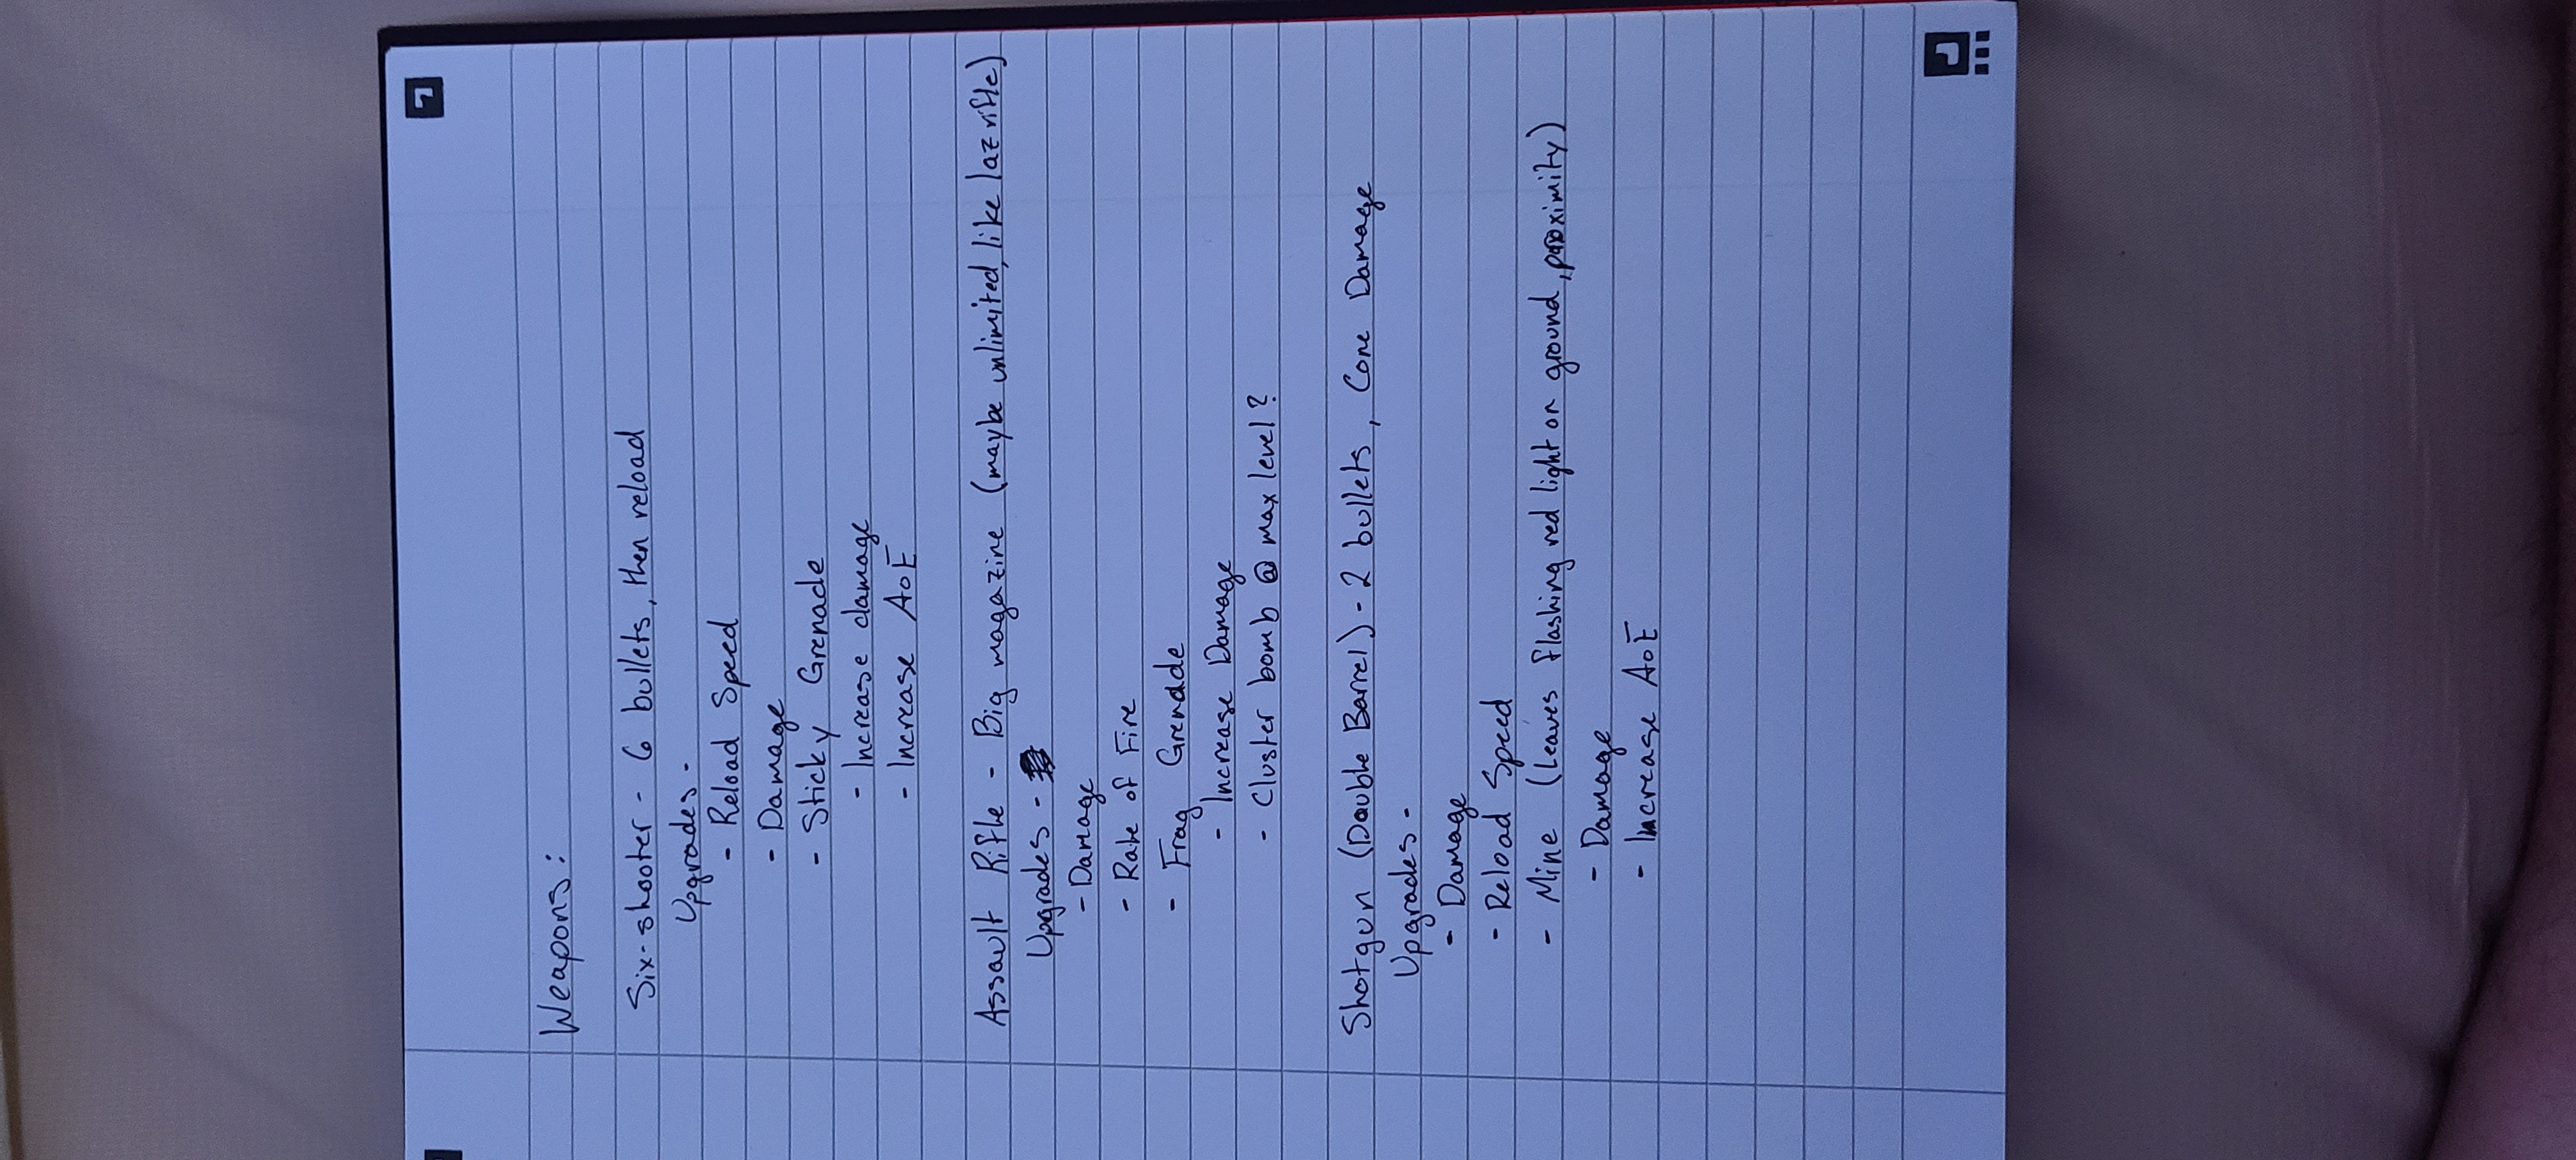 Weapons:
Six-shooter - 6 bullets, then reload
Upgrades -
- Reload Speed
- Damage
- Sticky Grenade
- Increase damage
- Increase AoE
Assault Rifle - Big magazine (maybe unlimited, like laz rifle)
Upgrades -
- Damage
- Rate of Fire
- Frag Grenade
- Increase Damage
- Cluster bomb @ max level?
Shotgun (Double Barrel) - 2 bullets, Cone Damage
Upgrades -
- Damage
- Reload Speed
- Mine (Leaves flashing red light on ground, proximity)
- Damage
- Increase AoE